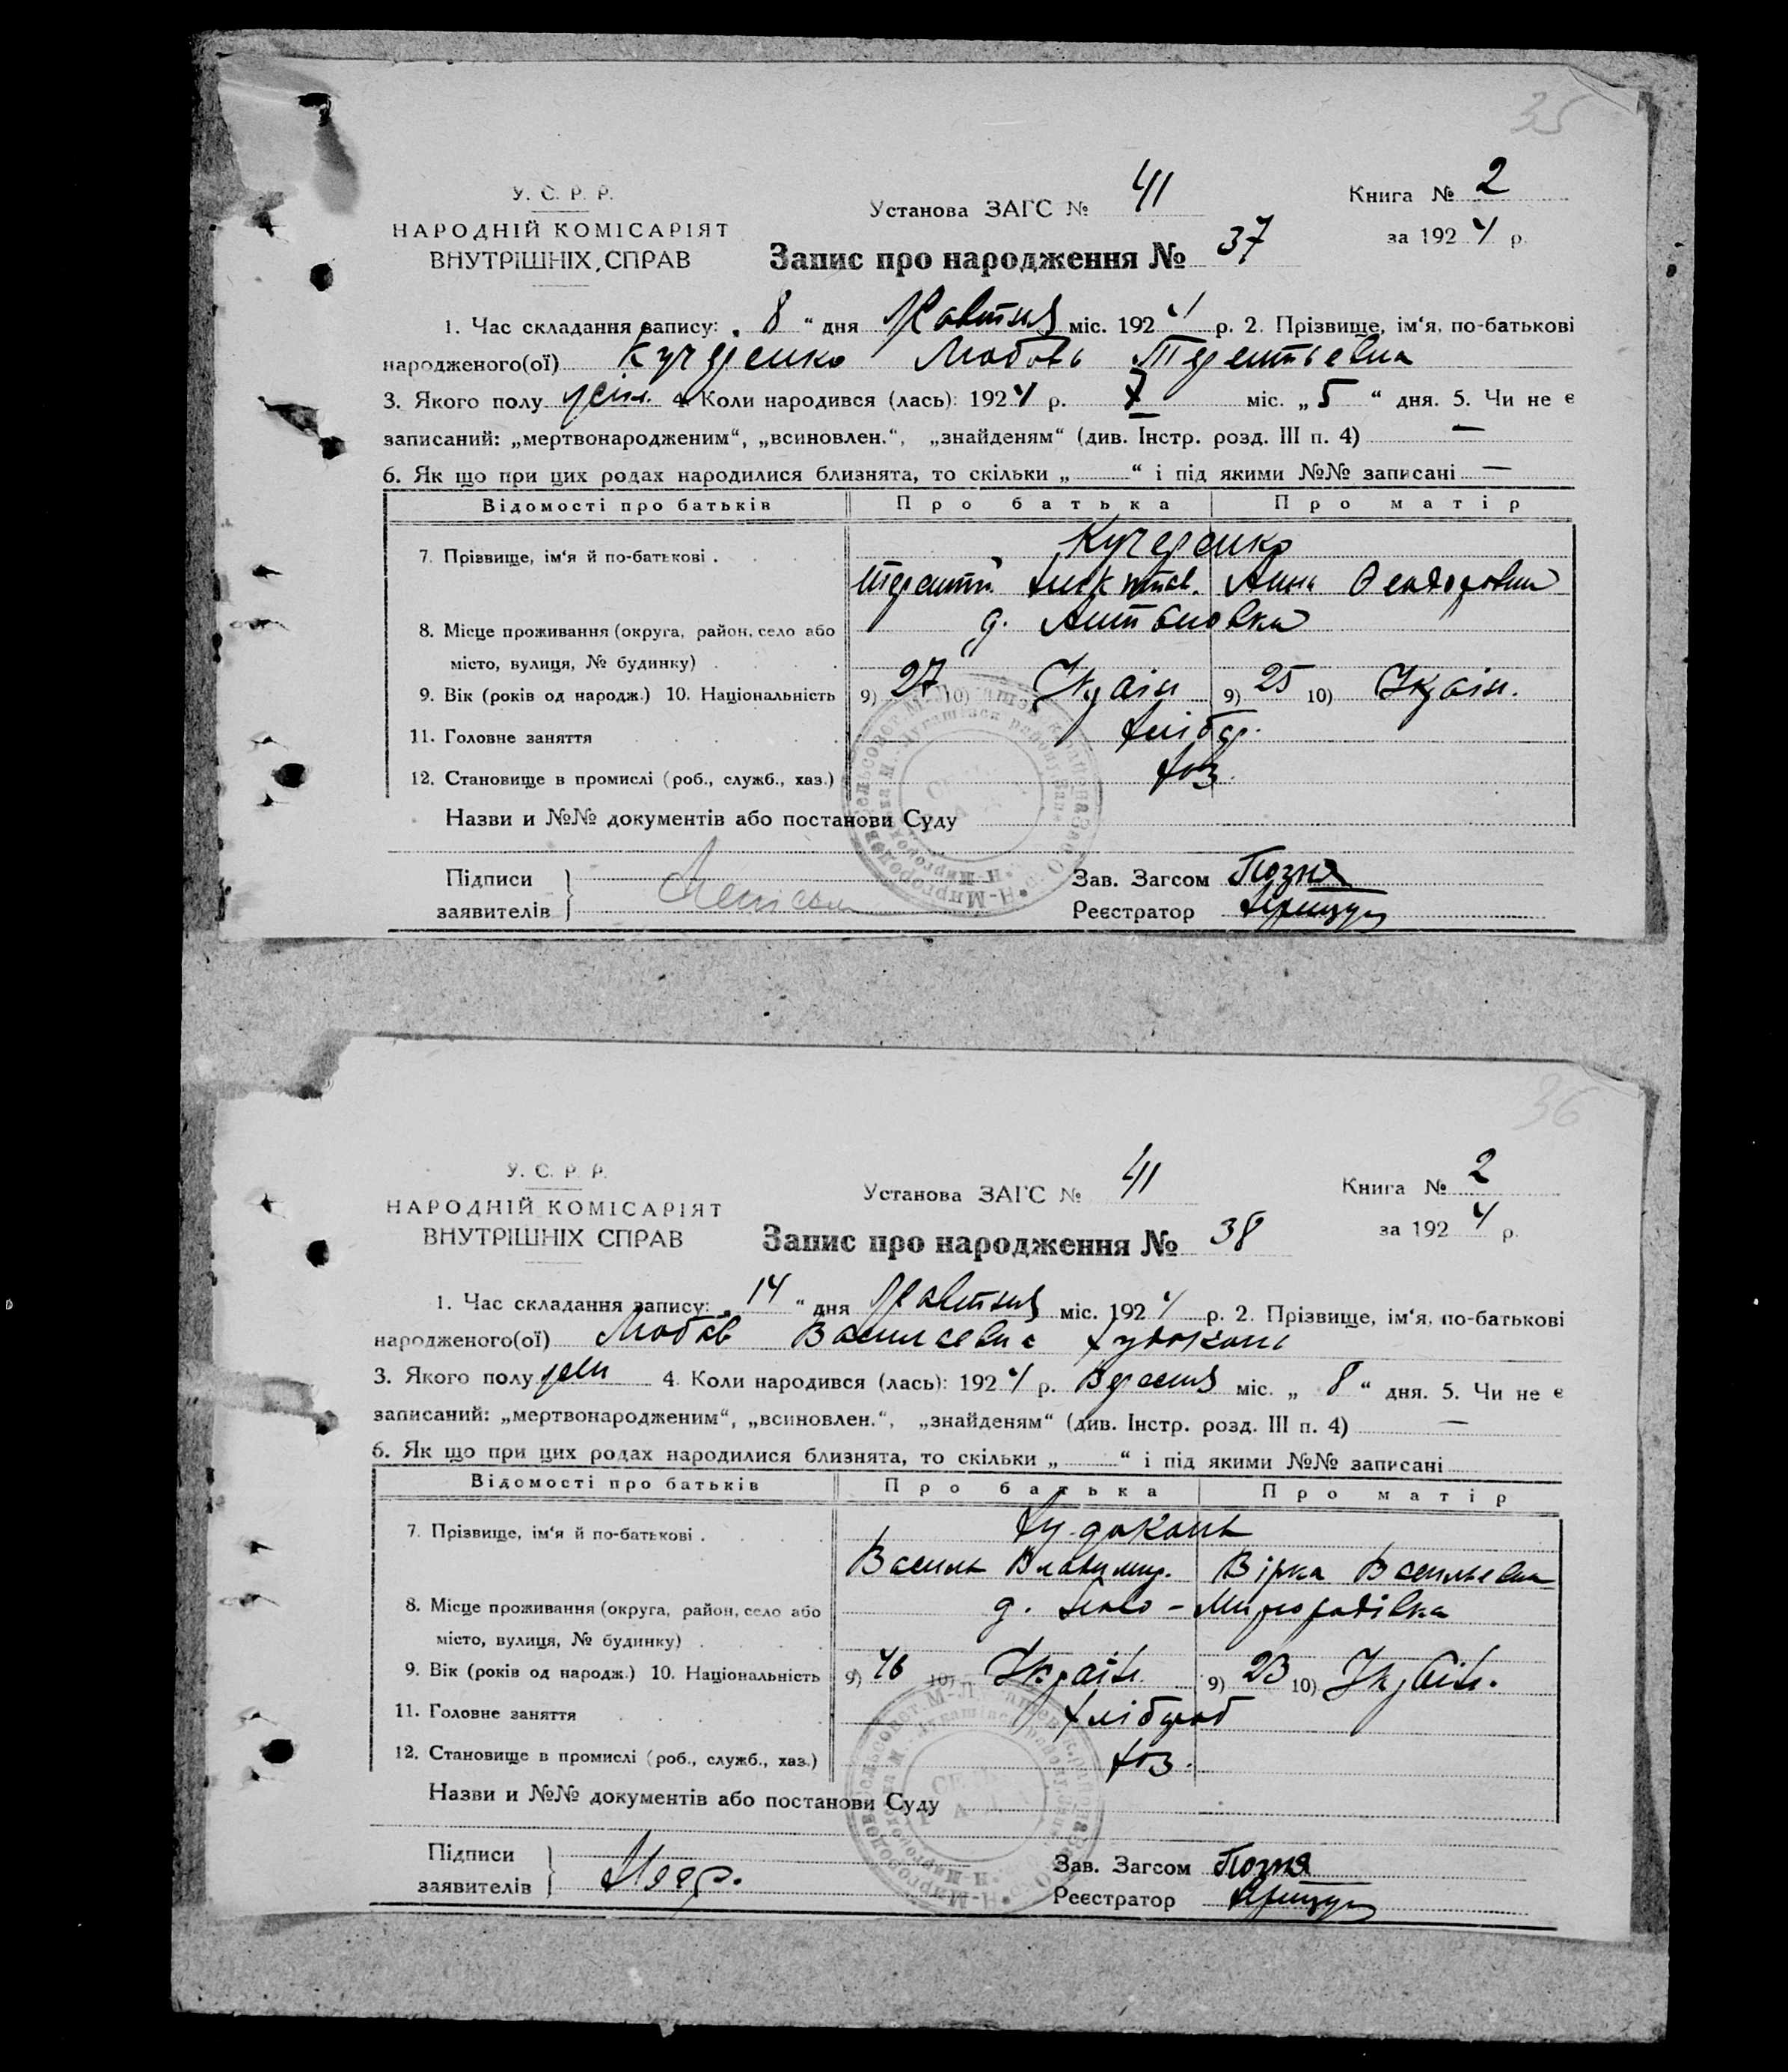 35
У. С. Р. Р.
НАРОДНІЙ КОМІСАРІЯТ
ВНУТРІШНІХ СПРАВ
Установа ЗАГС № 41
Книга № 2
за 1924 р.
Запис про народження № 37
1. Час складання запису: „ 8 “ дня Жовтня міс. 1924 р. 2. Прізвище, ім‘я, по-батькові
народженого(ої) Кучеренко Любовь Терентьевна
3. Якого полу жін. 4. Коли народився (лась): 1924 р. X міс. „ 5 “ дня. 5. Чи не є
записаний: „мертвонародженим“, „всиновлен.“, „знайденям“ (див. Інстр. розд. III п. 4) —
6. Як що при цих родах народилися близнята, то скільки „ “ і під якими №№ записані —
Відомості про батьків Про батька Про матір
7. Прізвище, ім‘я й по-батькові . Кучеренко
Терентй Анна
8. Місце проживання (округа, район, село або д. Антоновка
місто, вулиця, № будинку)
9. Вік (років од народж.) 10. Національність 9) 27 10) Украін 9) 25 10) Украін.
11. Головне заняття хлібор.
12. Становище в промислі (роб., служб., хаз.) хоз.
Назви и №№ документів або постанови Суду
Підписи
заявителів
Зав. Загсом
Реєстратор
36
У. С. Р. Р.
НАРОДНІЙ КОМІСАРІЯТ
ВНУТРІШНІХ СПРАВ
Установа ЗАГС № 41
Книга № 2
за 1924 р.
Запис про народження № 38
1. Час складання запису: „ 14 “ дня Жовтня міс. 1924 р. 2. Прізвище, ім‘я, по-батькові
народженого(ої) Любов Васильевна Худоконь
3. Якого полу жен 4. Коли народився (лась): 1924 р. Вересня міс. „ 8 “ дня. 5. Чи не є
записаний: „мертвонародженим“, „всиновлен.“, „знайденям“ (див. Інстр. розд. III п. 4) —
6. Як що при цих родах народилися близнята, то скільки „ “ і під якими №№ записані
Відомості про батьків Про батька Про матір
7. Прізвище, ім‘я й по-батькові . Худоконь
Василь Владимир. Вірка Васильевна
8. Місце проживання (округа, район, село або д. Ново-Миргородівка
місто, вулиця, № будинку)
9. Вік (років од народж.) 10. Національність 9) 10) Украін. 9) 23 10) Украін.
11. Головне заняття хлібороб
12. Становище в промислі (роб., служб., хаз.) хоз.
Назви и №№ документів або постанови Суду
Підписи
заявителів
Зав. Загсом
Реєстратор